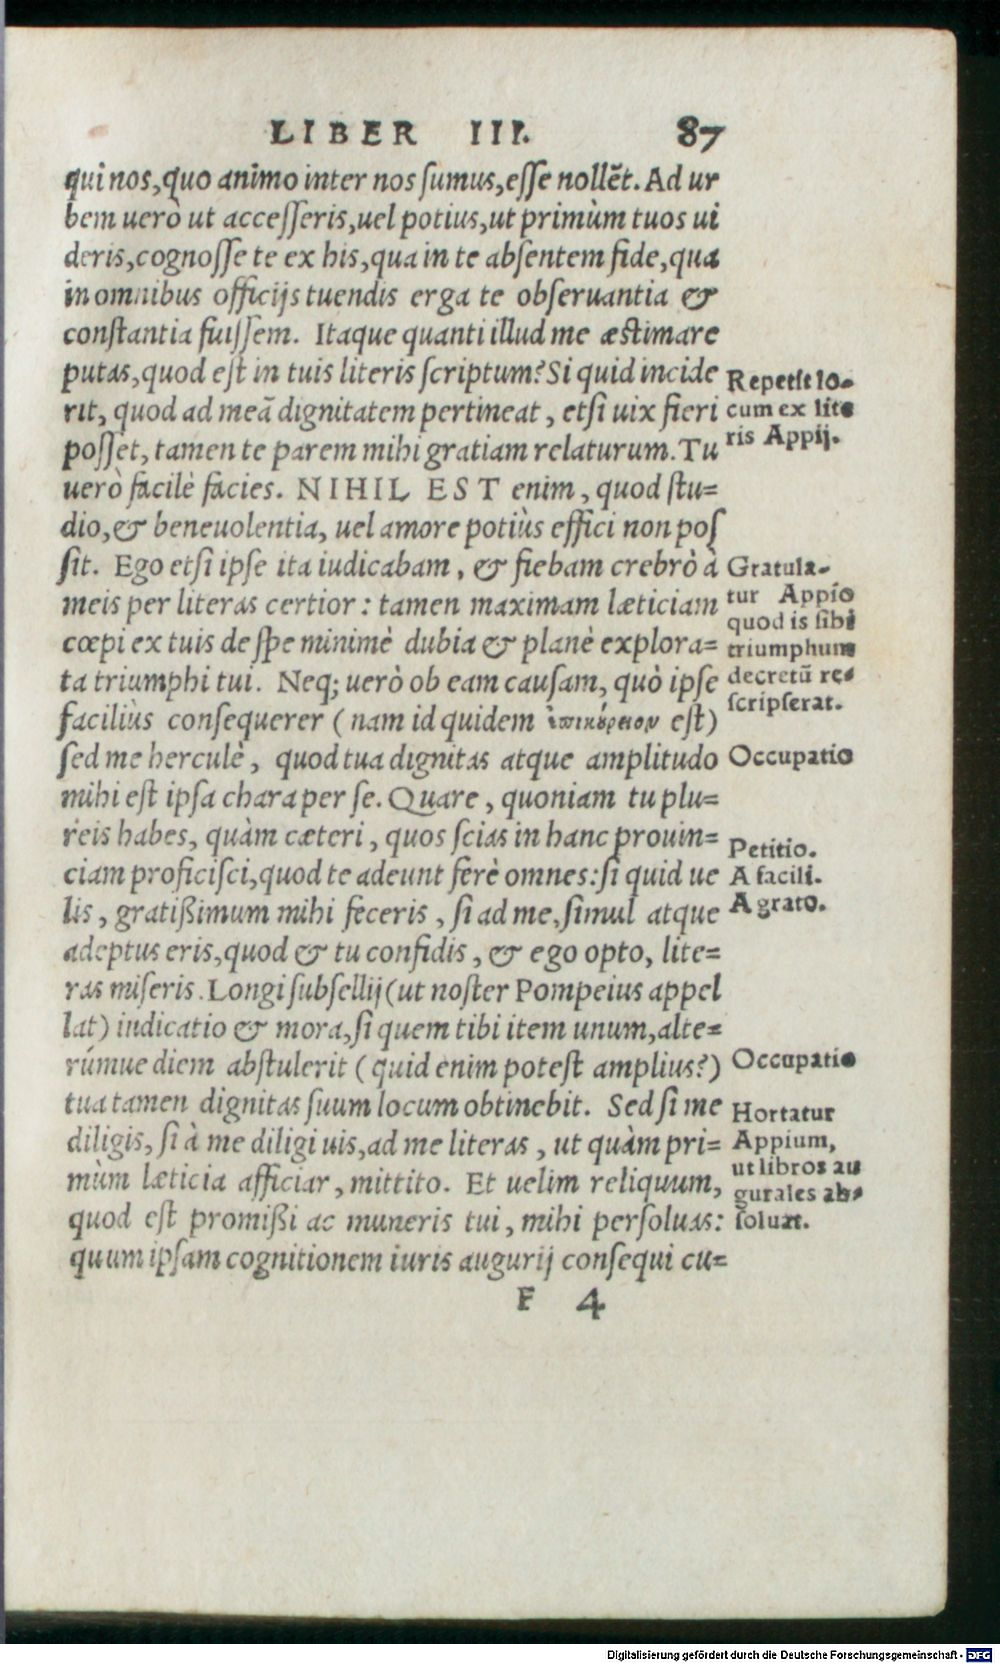 LIBER III. 87
qui nos, quo animo inter nos ſumus, eſſe nollẽt. Ad ur
bem uerò ut acceſſeris, uel potius, ut primùm tuos ui
deris, cognoſſe te ex his, qua in te abſentem fide, qua
in omnibus officijs tuendis erga te obſeruantia &
conſtantia fuiſſem. Itaque quanti illud me æſtimare
putas, quod eſt in tuis literis ſcriptum? Si quid incide
rit, quod ad meã dignitatem pertineat, etſi uix fieri
poſſet, tamen te parem mihi gratiam relaturum. Tu
uerò facilè facies. NIHIL EST enim, quod ſtu=
dio, & beneuolentia, uel amore potiùs effici non poſ
ſit. Ego etſi ipſe ita iudicabam, & fiebam crebrò à
meis per literas certior: tamen maximam læticiam
cœpi ex tuis de ſpe minimè dubia & planè explora=
ta triumphi tui. Neq; uerò ob eam cauſam, quò ipſe
faciliùs conſequerer (nam id quidem ἐπικούρειον eſt)
ſed me herculè, quod tua dignitas atque amplitudo
mihi eſt ipſa chara per ſe. Quare, quoniam tu plu=
reis habes, quàm cæteri, quos ſcias in hanc prouin=
ciam proficiſci, quod te adeunt ferè omnes: ſi quid ue
lis, gratißimum mihi feceris, ſi ad me, ſimul atque
adeptus eris, quod & tu confidis, & ego opto, lite=
ras miſeris. Longi ſubſellij (ut noſter Pompeius appel
lat) iudicatio & mora, ſi quem tibi item unum, alte=
rúmue diem abſtulerit (quid enim poteſt amplius?)
tua tamen dignitas ſuum locum obtinebit. Sed ſi me
diligis, ſi à me diligi uis, ad me literas, ut quàm pri=
mùm læticia afficiar, mittito. Et uelim reliquum,
quod eſt promißi ac muneris tui, mihi perſoluas:
quum ipſam cognitionem iuris augurij conſequi cu=
F 4
Repetit lo-
cum ex lite
ris Appij.
Gratula-
tur Appio
quod is ſibi
triumphum
decretũ re-
ſcripſerat.
Occupatio
Petitio.
A facili.
A grato.
Occupatio
Hortatur
Appium,
ut libros au
gurales ab-
ſoluat.
Digitalisierung gefördert durch die Deutsche Forschungsgemeinschaft - DFG